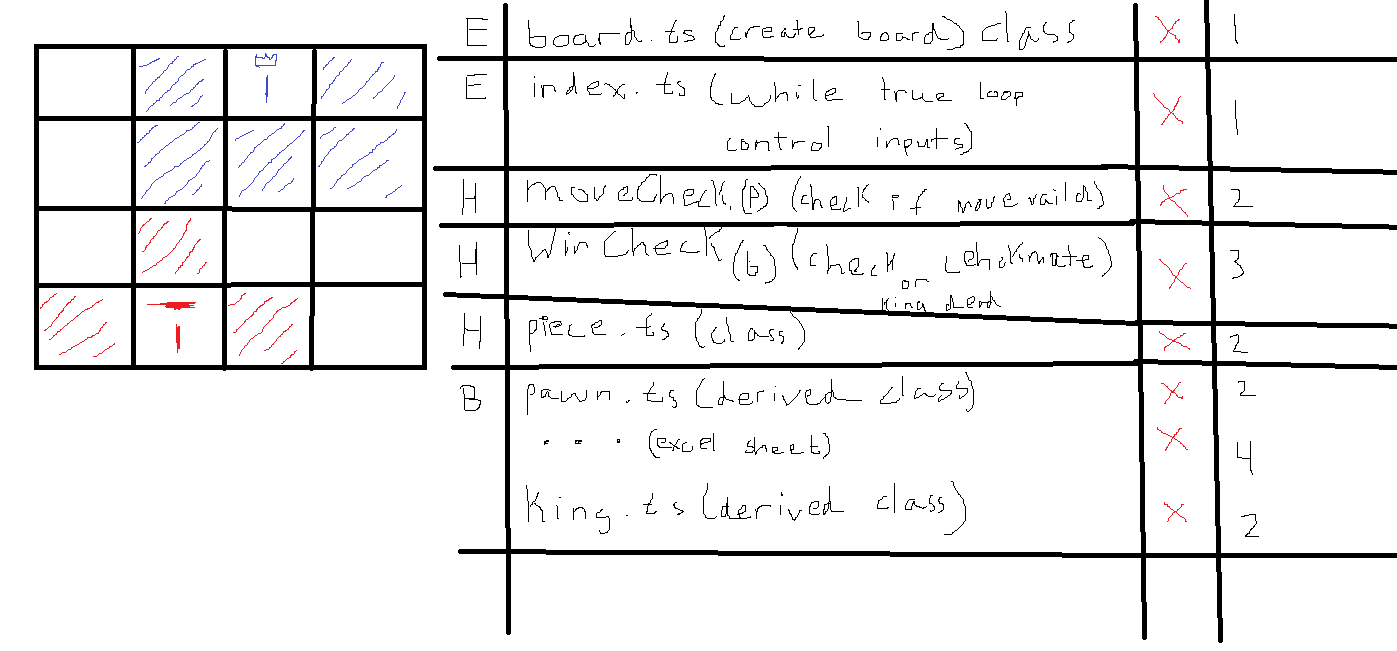 E board.ts (create board) class X 1
E index.ts (while true loop X 1
control inputs)
H moveCheck.(p) (check if move vaild) X 2
H WinCheck (b) (check or Cehckmate) X 3
king dead
H piece.ts (class) X 2
B pawn.ts (derived class) X 2
... (excel sheet) X 4
King.ts (derived class) X 2